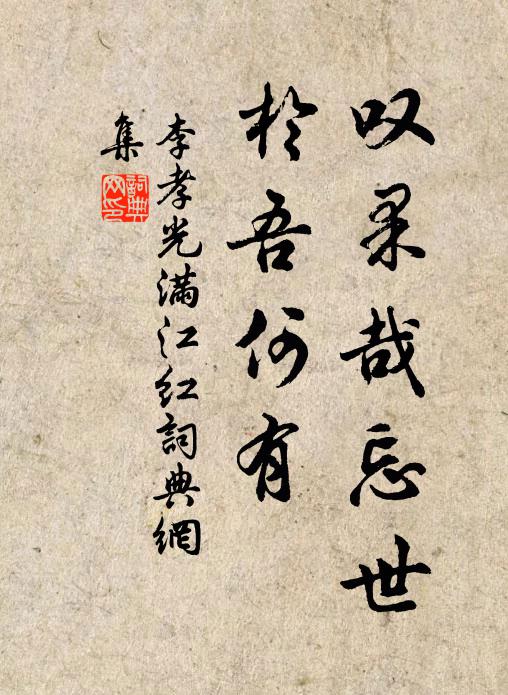 叹果哉忘世
於吾何有
李孝光满江红詞典網
集
詞典网印